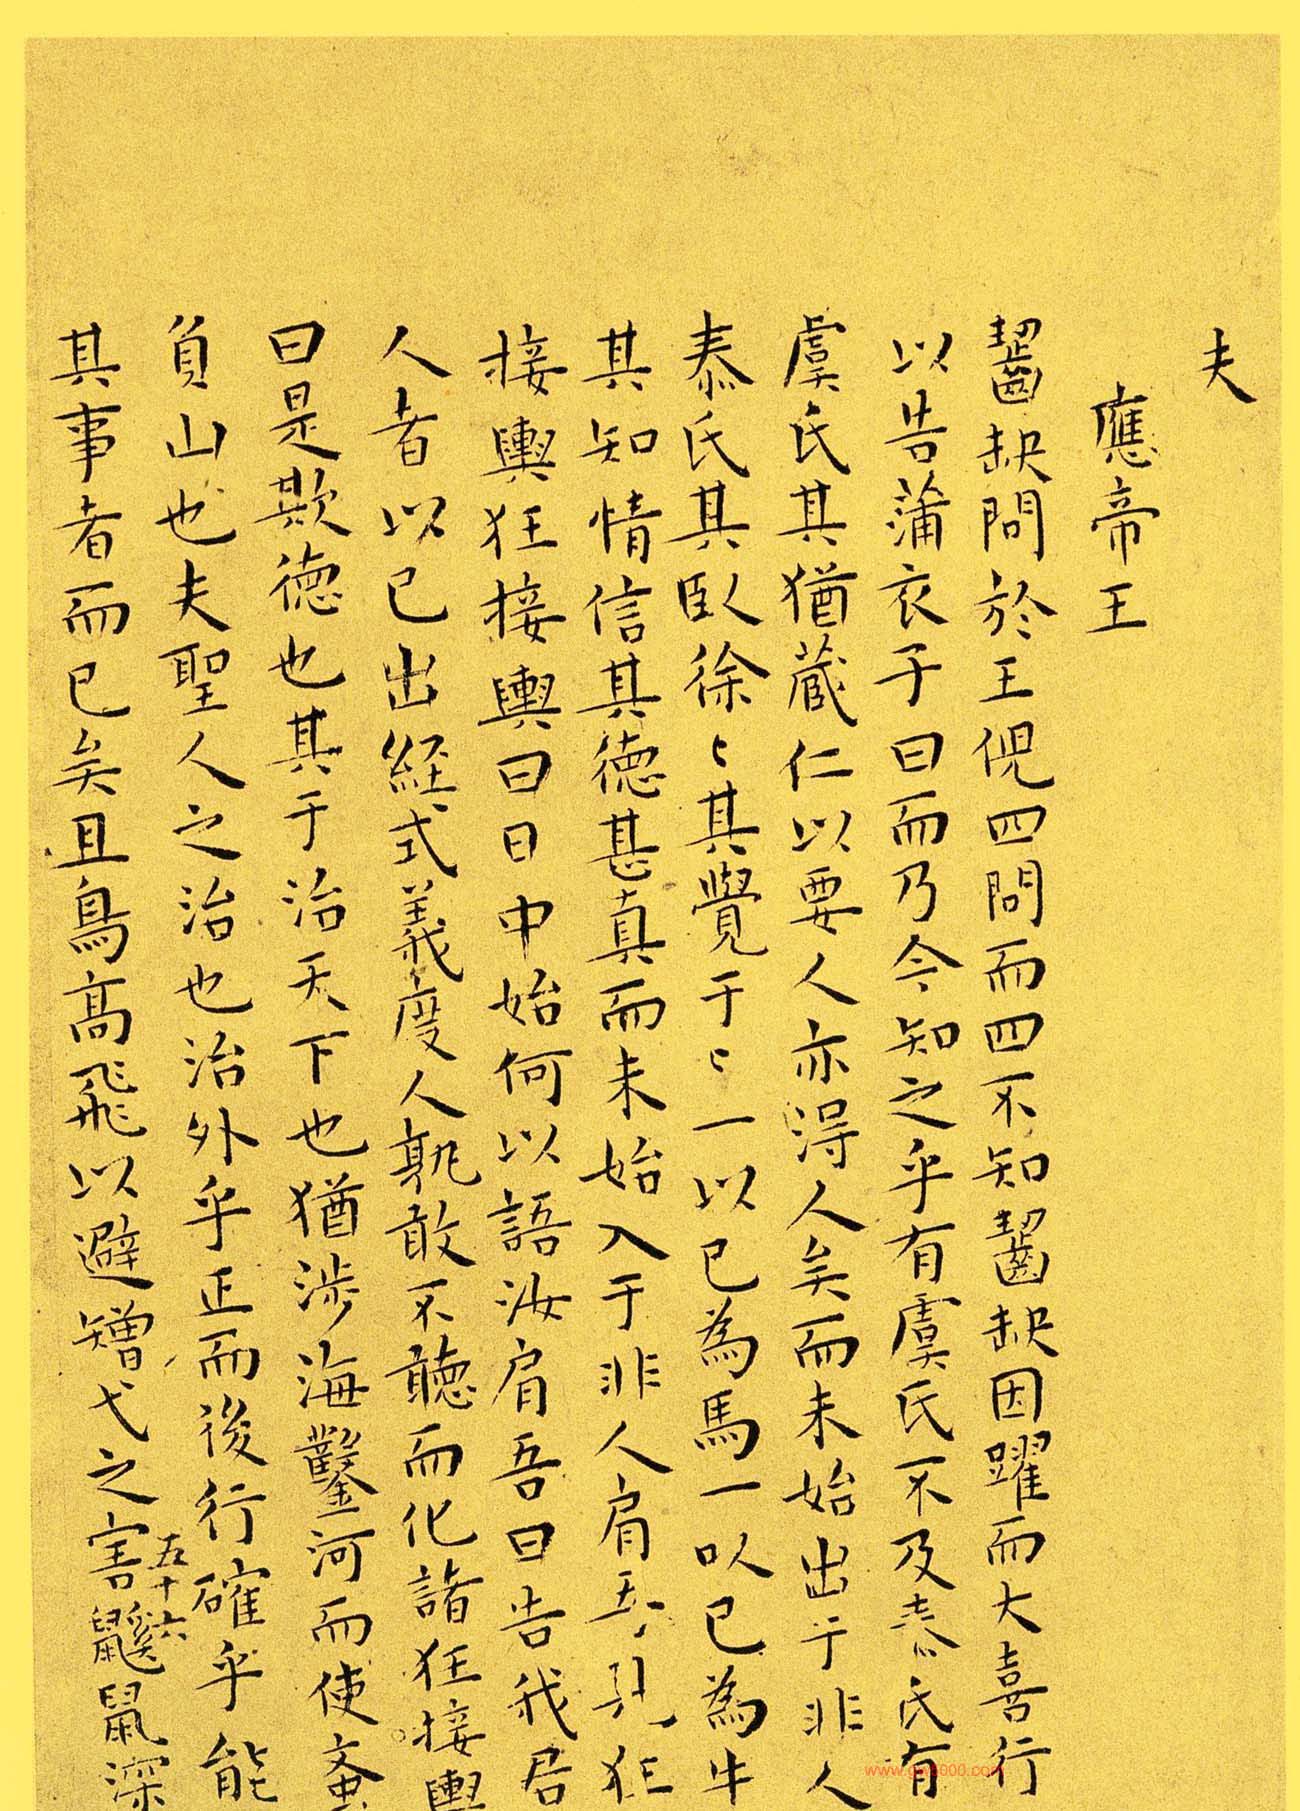 夫
應帝王
齧缺問於王倪四問而四不知齧缺因躍而大喜行
以告蒲衣子曰而乃今知之乎有虞氏不及泰氏有
虞氏其猶藏仁以要人亦得人矣而未始出于非人
泰氏其臥徐〻其覺于〻一以已為馬一以已為牛
其知情信其德甚真而未始入于非人肩吾見狂
接輿狂接輿曰日中始何以語汝肩吾曰告我君
人者以已出經式義度人孰敢不聽而化諸狂接輿
曰是欺德也其于治天下也猶涉海鑿河而使蚉
負山也夫聖人之治也治外乎正而後行確乎能
其事者而已矣且鳥高飛以避矰弋之害鼷鼠深
五十六
www.gw5000.com